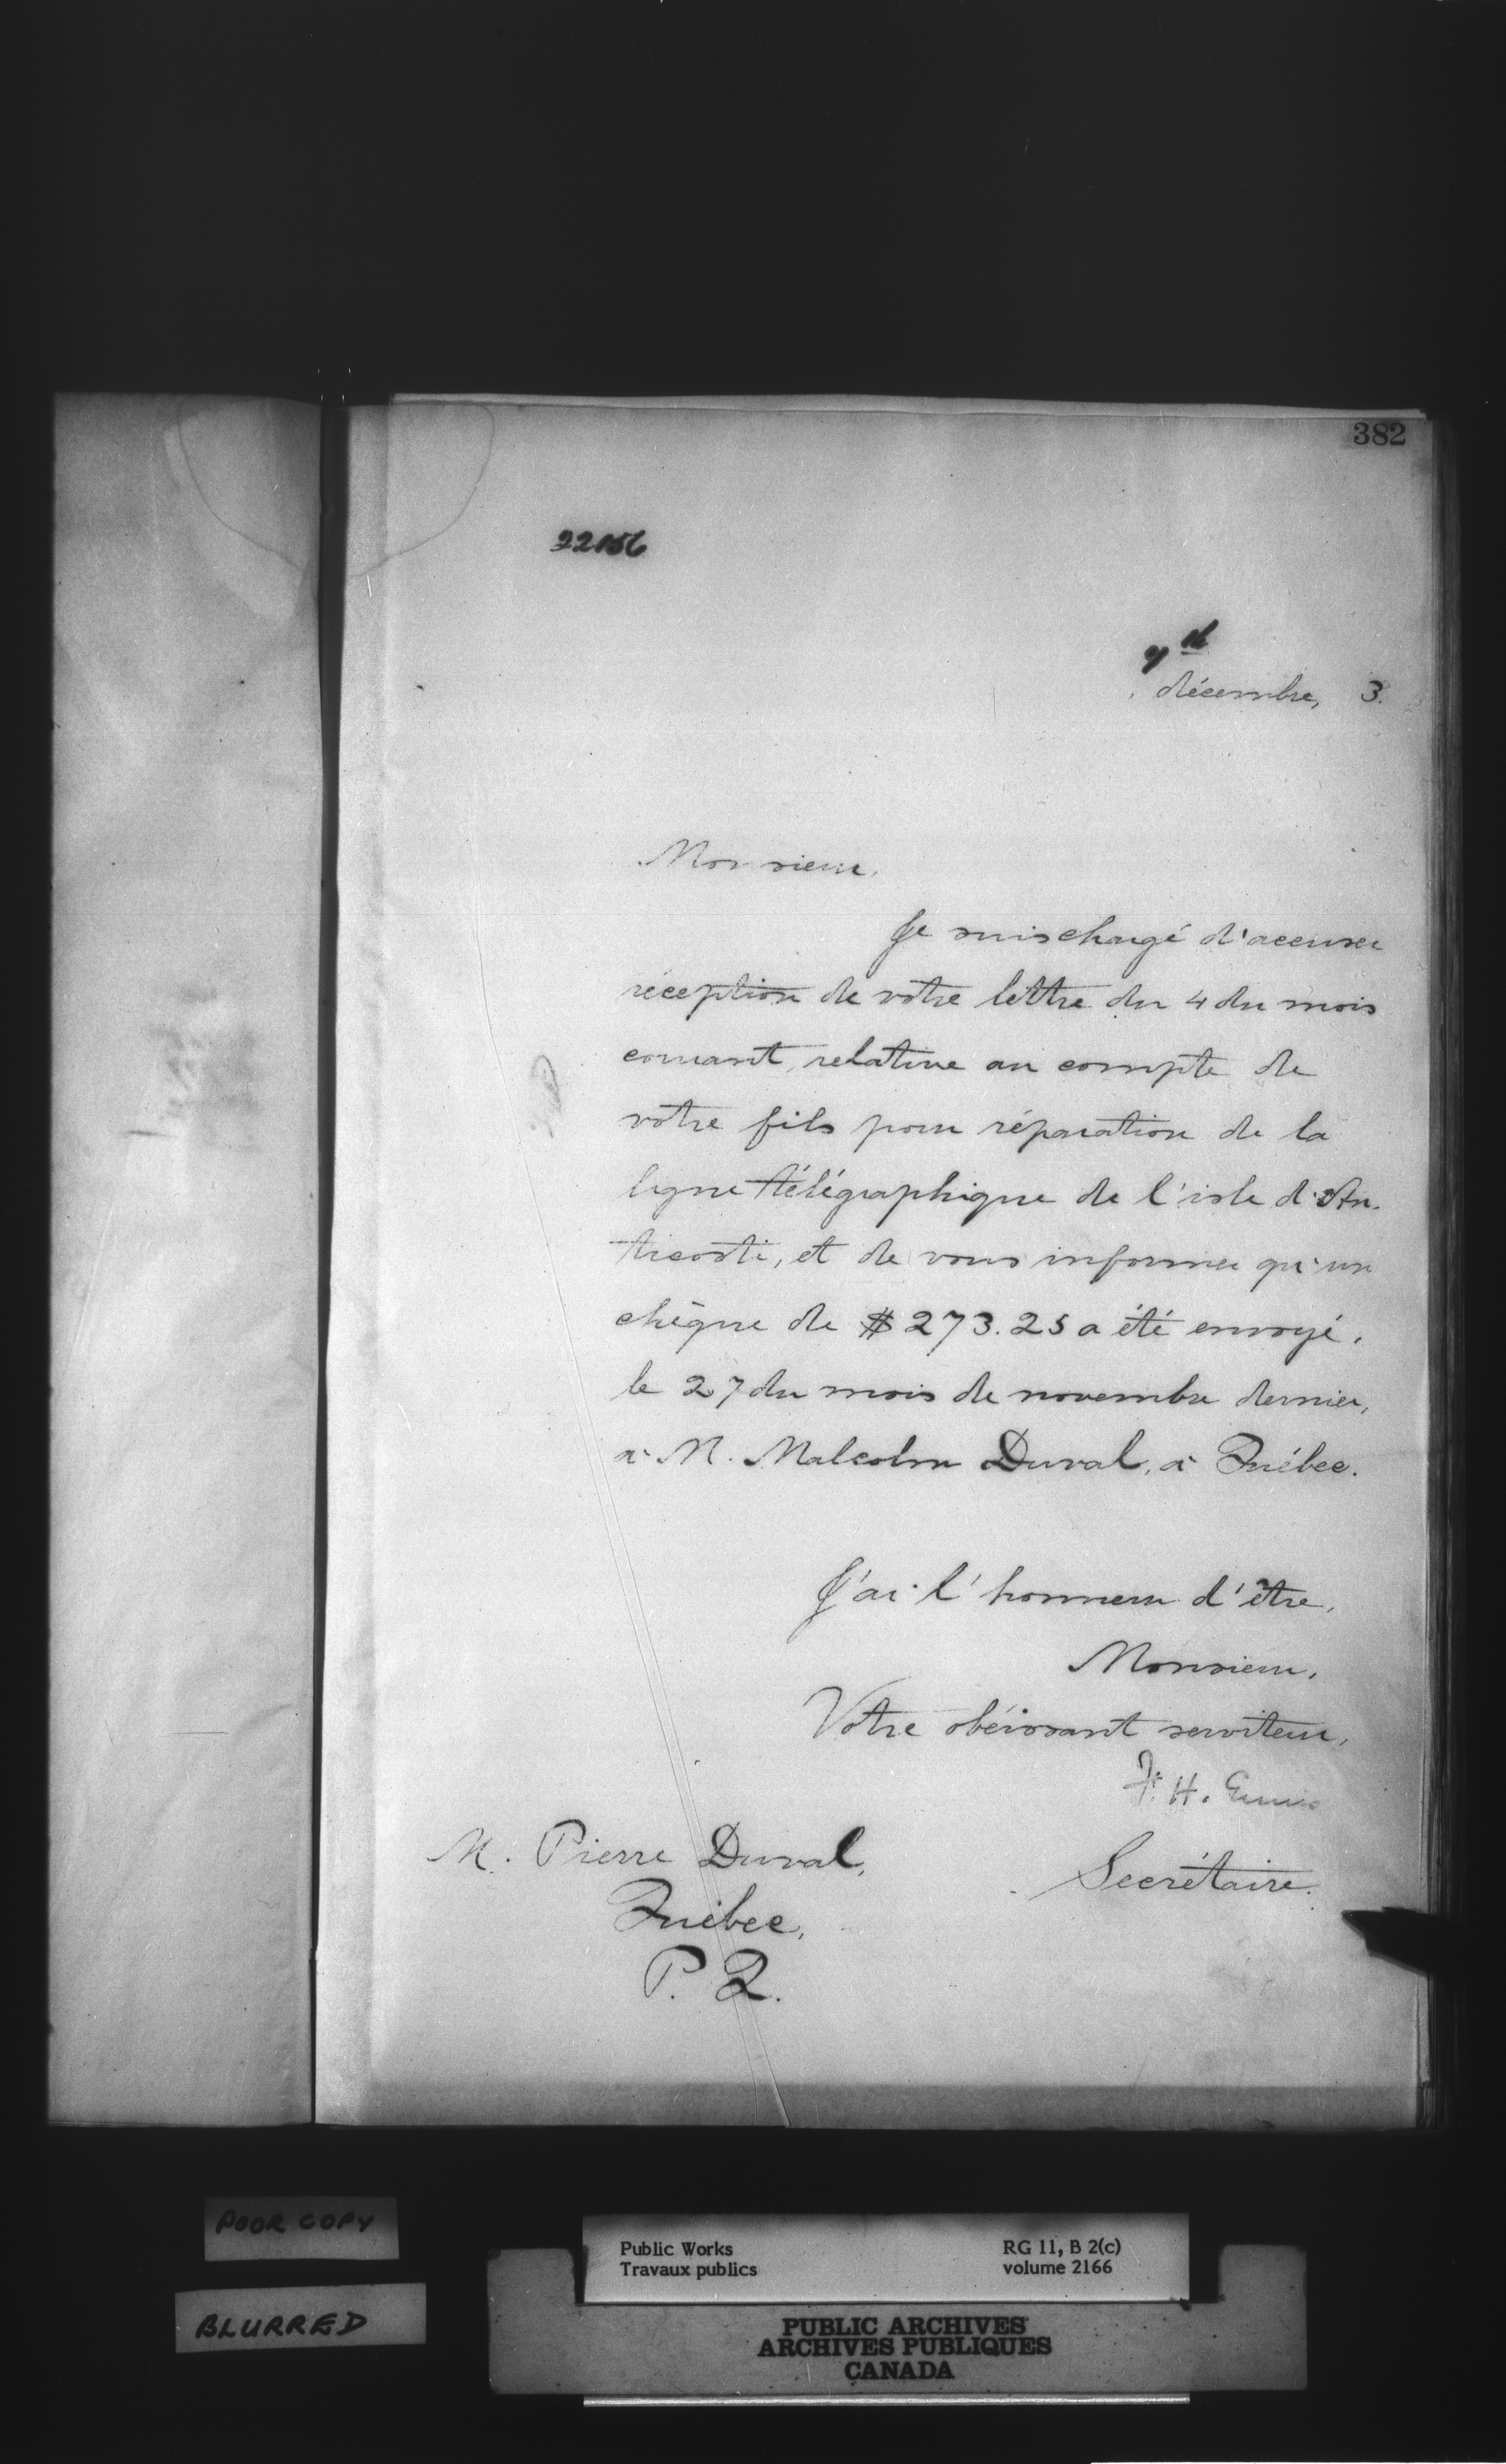 382
décembre, 3.
Monsieur,
Je suis chargé d'accuser
réception de votre lettre du 4 du mois
courant, relative au compte de
votre fils pour réparation de la
ligne télégraphique de l'isle d'An-
ticosti, et de vous informer qu'un
chèque de $273.25 a été envoyé,
le 27 du mois de novembre dernier,
à M. Malcolm Duval, à Québec.
J'ai l'honneur d'être,
Monsieur,
Votre obéissant serviteur,
F. H. Ennis
Secrétaire.
M. Pierre Duval,
Québec,
P. Q.
POOR COPY
BLURRED
Public Works RG 11, B 2(c)
Travaux publics volume 2166
PUBLIC ARCHIVES
ARCHIVES PUBLIQUES
CANADA